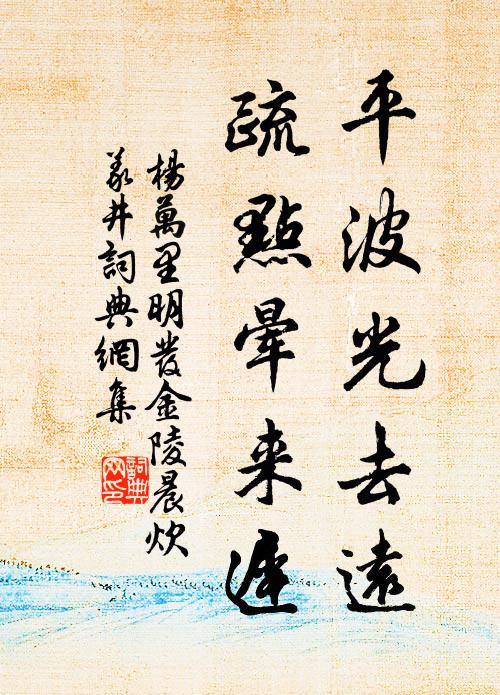 平波光去遠
疏點暈来遲
楊萬里明發金陵晨炊
義井詞典網集
詞典网印